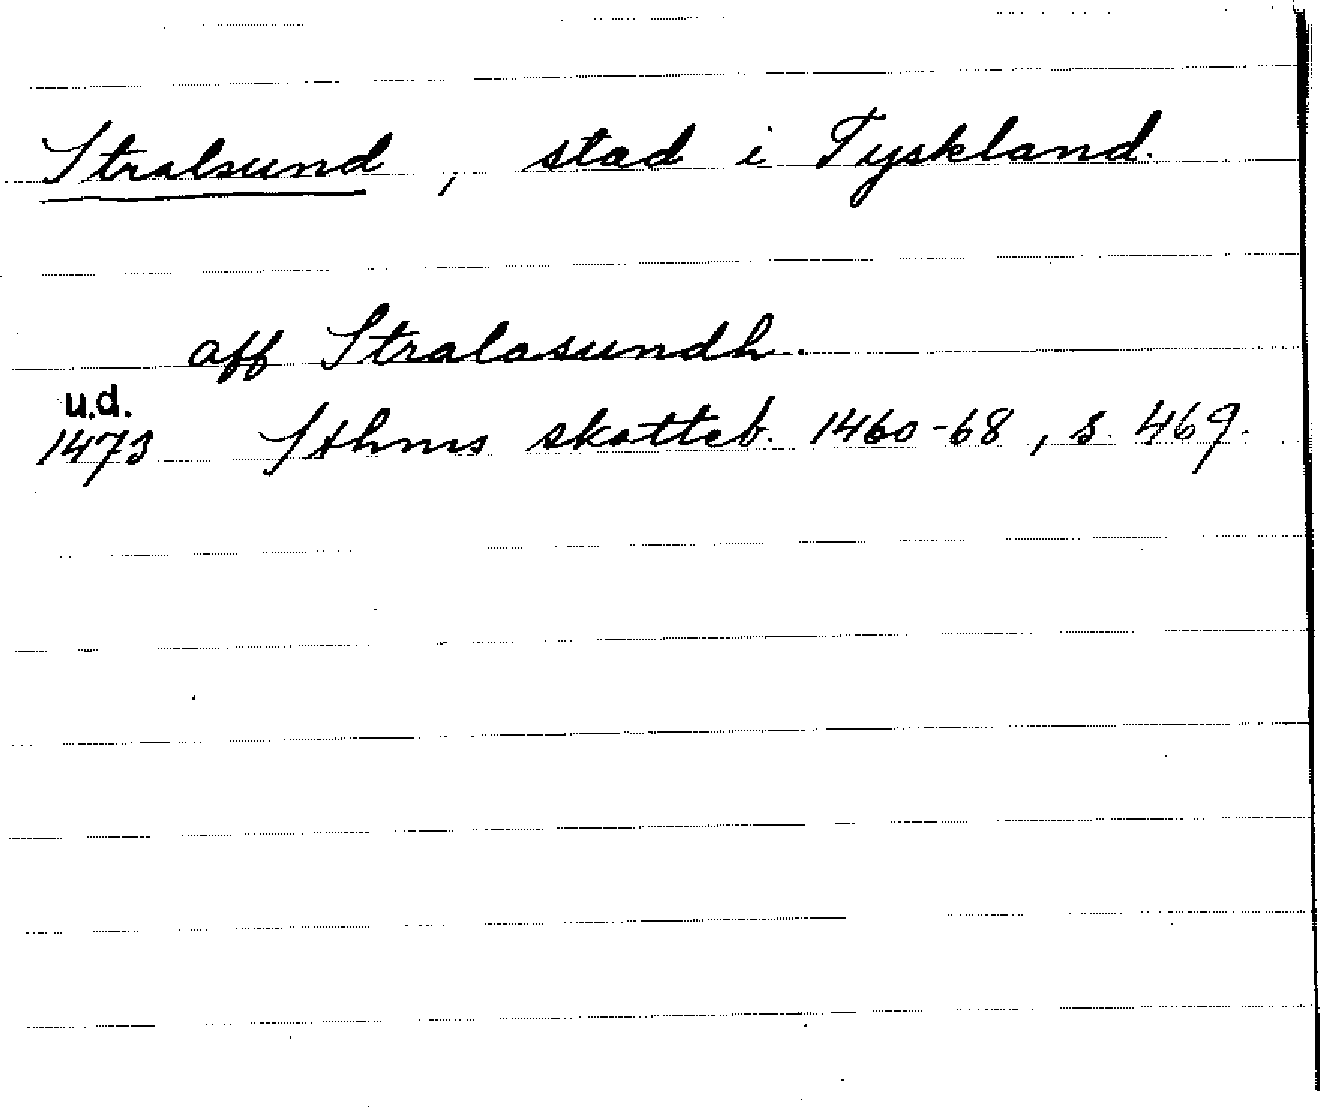 Stralsund, stad i Tyskland.
aff Stralasundh.
u.d.
1473 Sthms skatteb. 1460-68, s. 469.